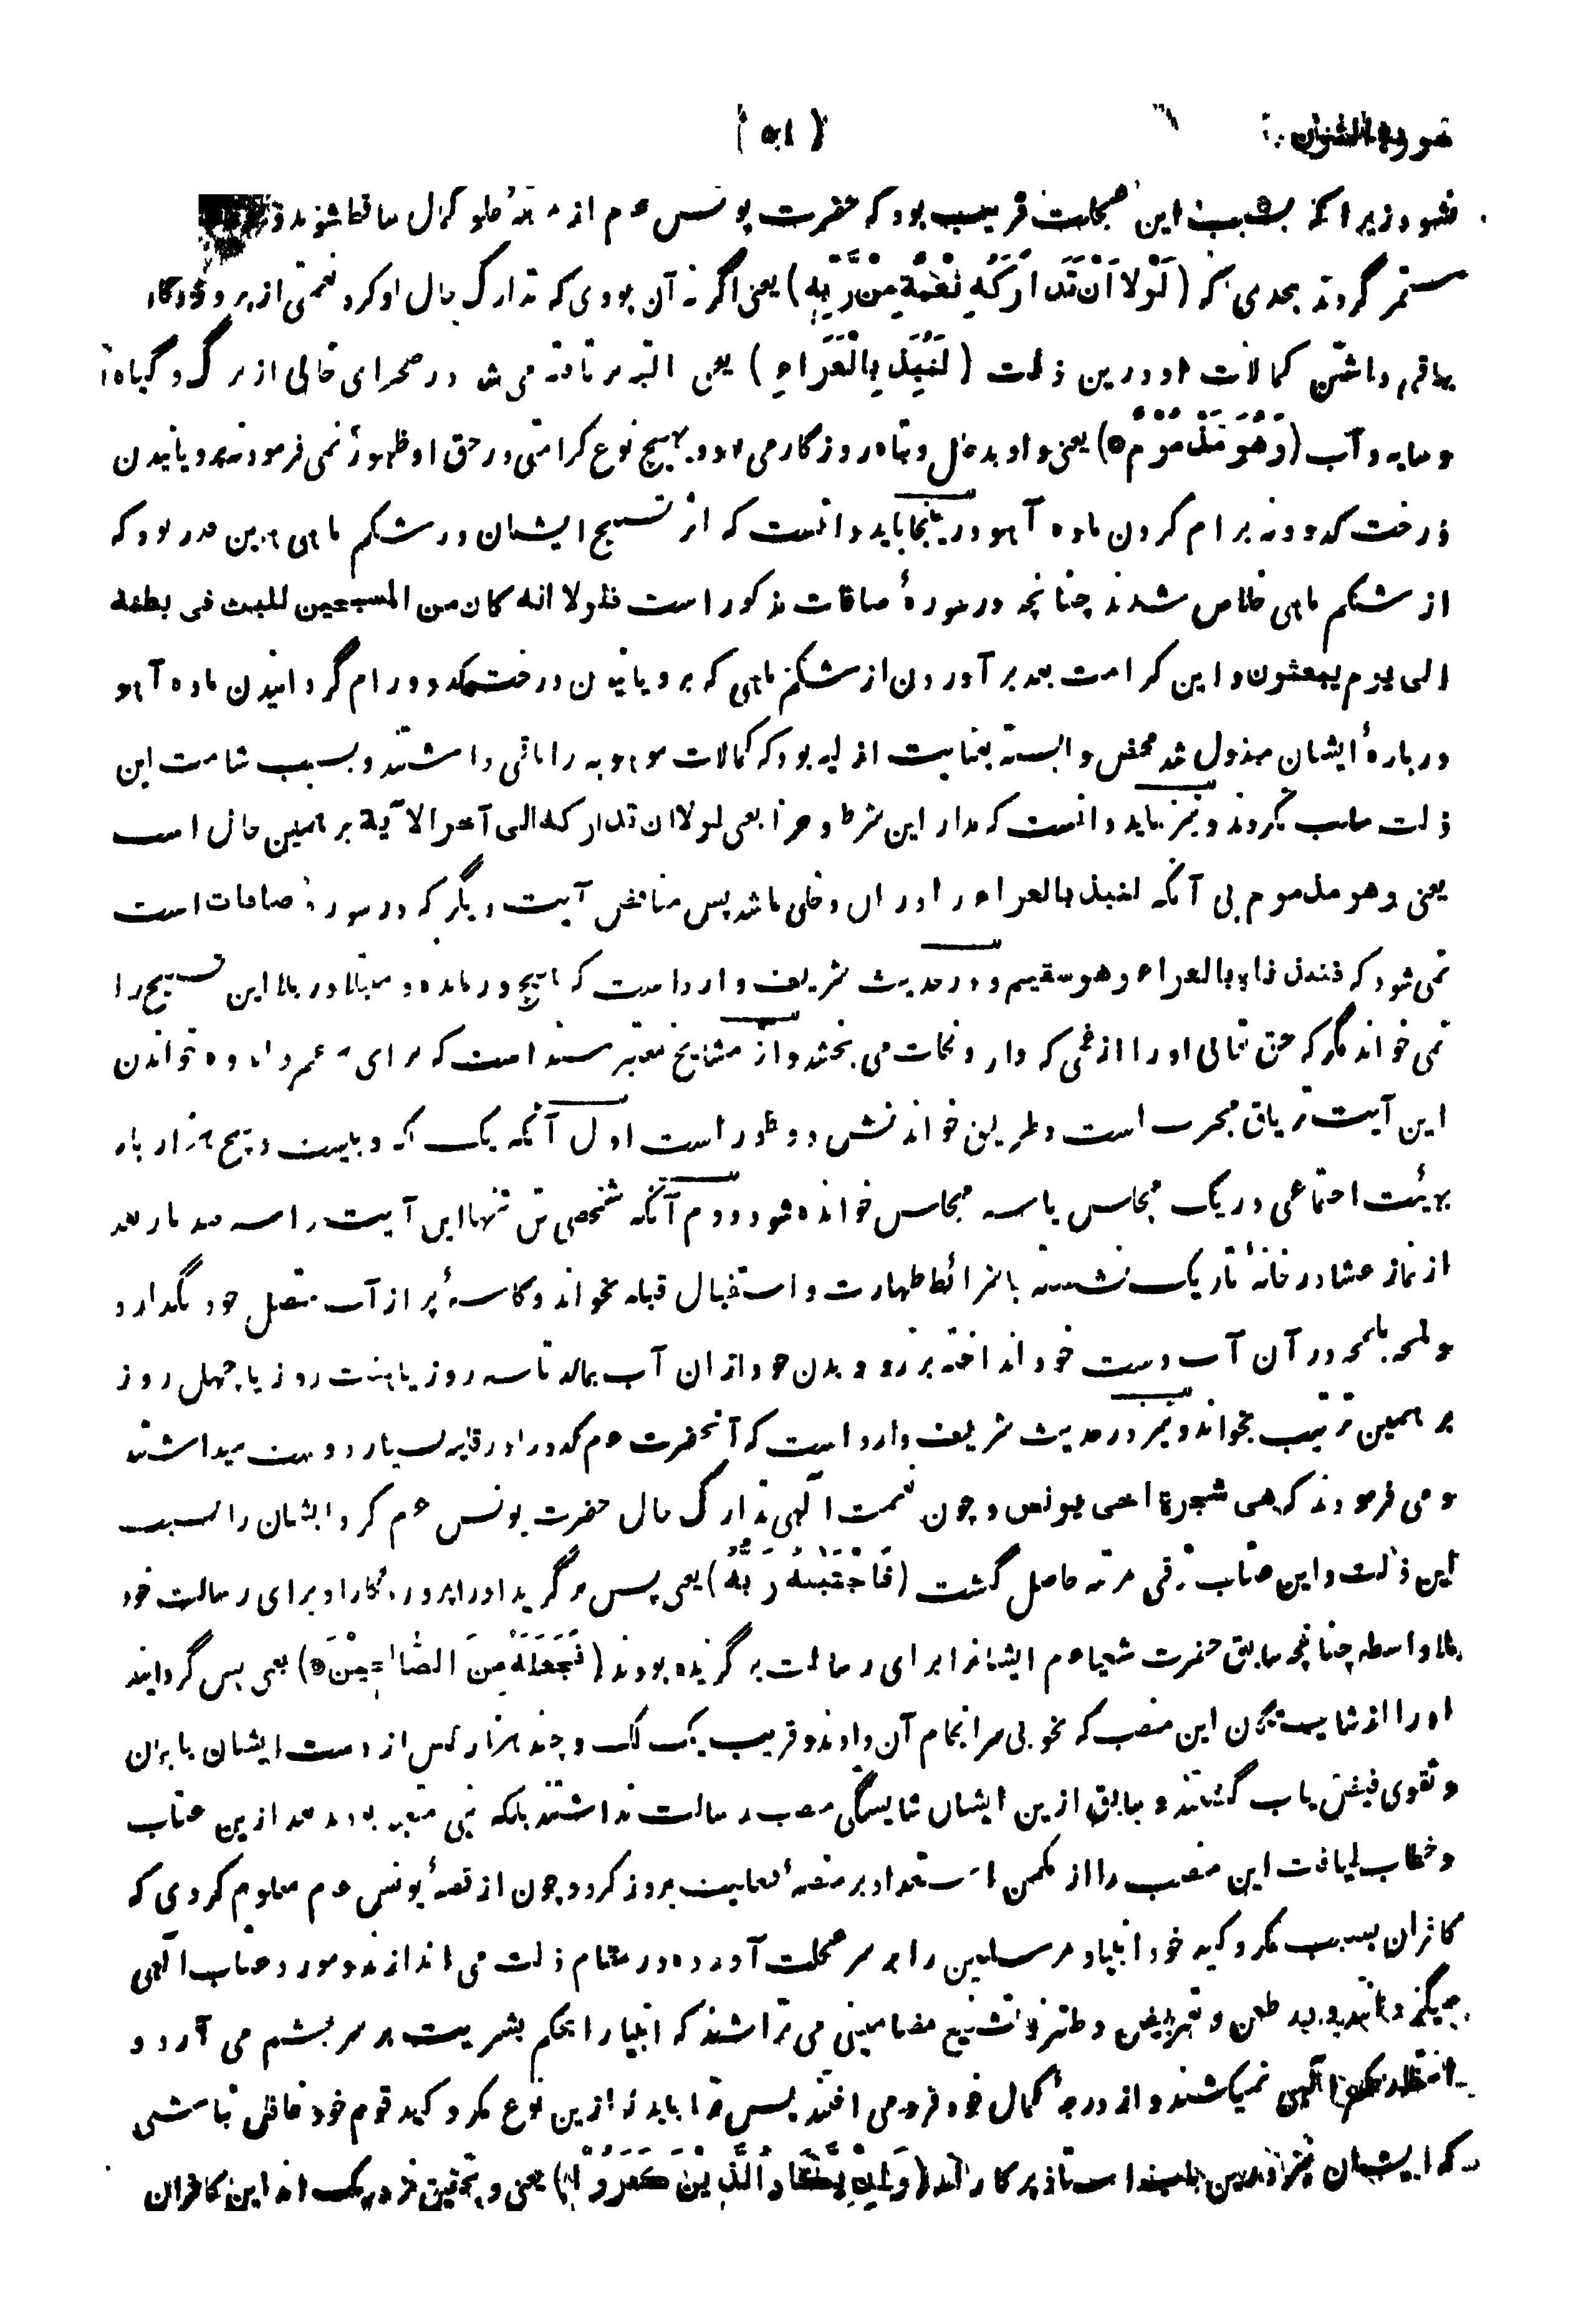 ( ۵۱ )
شود زیرا که بسبب این عجلت قریب بود که حضرت یونس ع م از مرتبهٔ علو کمال ساقط شوند و
مستمر گردند بحدی که (لَوْلَا اَنْ تَدَارَكَهُ نِعْمَةٌ مِنْ رَّبِّهٖ) یعنی اگر نه آن بودی که تدارک حال او کرد نعمتی از پروردگار
داشتن کمالات او درین ذلت (لَنُبِذَ بِالْعَرَاءِ) یعنی البته بر تافته می شد در صحرای خالی از برگ و گیاه
و سایه و آب (وَهُوَ مَذْمُوْمٌ) یعنی و او بدحال و تباه روزگار می بود و هیچ نوع کرامتی در حق او ظهور نمی فرمود نه برویانیدن
درخت کدو و نه برام کردن ماده آهو و درینجا باید دانست که اثر تسبیح ایشان در شکم ماهی همین قدر بود که
از شکم ماهی خلاص شدند چنانچه در سورهٔ صافات مذکور است فلولا انه کان من المسبحین للبث فی بطنه
الی یوم یبعثون و این کرامت بعد بر آوردن از شکم ماهی که برویانیدن درخت کدو و رام گردانیدن ماده آهو
دربارهٔ ایشان مبذول شد محض وابسته بعنایت ازلیه بود که کمالات موهوبه را باقی داشتند و بسبب شامت این
ذلت سلب نکردند و نیز باید دانست که مدار این شرط و جزا یعنی لولا ان تدارکه الی آخر الآیة بر همین حال است
یعنی وهو مذموم بی آنکه لنبذ بالعراء را در ان دخلی باشد پس مناقض آیت دیگر که در سورهٔ صافات است
نمی شود که فنبذناه بالعراء وهو سقیم و در حدیث شریف وارد است که هیچ درمانده و مبتلا در بلا این تسبیح را
نمی خواند مگر که حق تعالی او را از غمی که دارد نجات می بخشد و از مشایخ معتبر سند است که برای هر غم و اندوه خواندن
این آیت تریاق مجرب است و طریق خواندنش دو طور است اول آنکه یک لک و بیست و پنج هزار بار
بهیئت اجتماعی در یک مجلس یا سه مجلس خوانده شود دوم آنکه شخصی تن تنها این آیت را سه صد بار بعد
از نماز عشا در خانهٔ تاریک نشسته باشرائط طهارت و استقبال قبله بخواند و کاسهٔ پر از آب متصل خود نگدارد
و لمحه بلمحه در آن آب دست خود انداخته بر رو و بدن خود ازان آب بمالد تا سه روز یا هفت روز یا چهل روز
بر همین ترتیب بخواند و نیز در حدیث شریف وارد است که آنحضرت ع م کدو را در قلیه بسیار دوست میداشتند
و می فرمودند که هی شجرة اخی یونس و چون نعمت الهی تدارک حال حضرت یونس ع م کرد ایشان را بسبب
این ذلت و این عتاب ترقی مرتبه حاصل گشت (فَاجْتَبٰهُ رَبُّهٗ) یعنی پس برگزید او را پروردگار او برای رسالت خود
بلا واسطه چنانچه سابق حضرت شعیا ع م ایشانرا برای رسالت برگزیده بودند (فَجَعَلَهٗ مِنَ الصّٰلِحِیْنَ) یعنی پس گردانید
او را از شایستگان این منصب که بخوبی سرانجام آن دادند و قریب یک لک و چند هزار کس از دست ایشان بایمان
و تقوی فیض یاب گشتند و سابق ازین ایشان شایستگی منصب رسالت نداشتند بلکه نبی متعبد بودند بعد ازین عتاب
و خطاب لیاقت این منصب را از مکمن استعداد بر منصهٔ فعلیت بروز کرد و چون از قصهٔ یونس ع م معلوم کردی که
کافران بسبب مکر و کید خود انبیا و مرسلین را بر سر عجلت آورده در مقام ذلت می اندازند و مورد عتاب الهی
طعن و تعریض و طنز و تشنیع مضامینی می تراشند که انبیا را بحکم بشریت بر سر خشم می آرد و
الهی نمیکشند و از درجهٔ کمال خود فرو می افتند پس ترا باید که ازین نوع مکر و کید قوم خود غافل نباشی
که ایشان (وَاِنْ یَّکَادُ الَّذِیْنَ کَفَرُوْا) یعنی و بتحقیق نزدیک اند این کافران